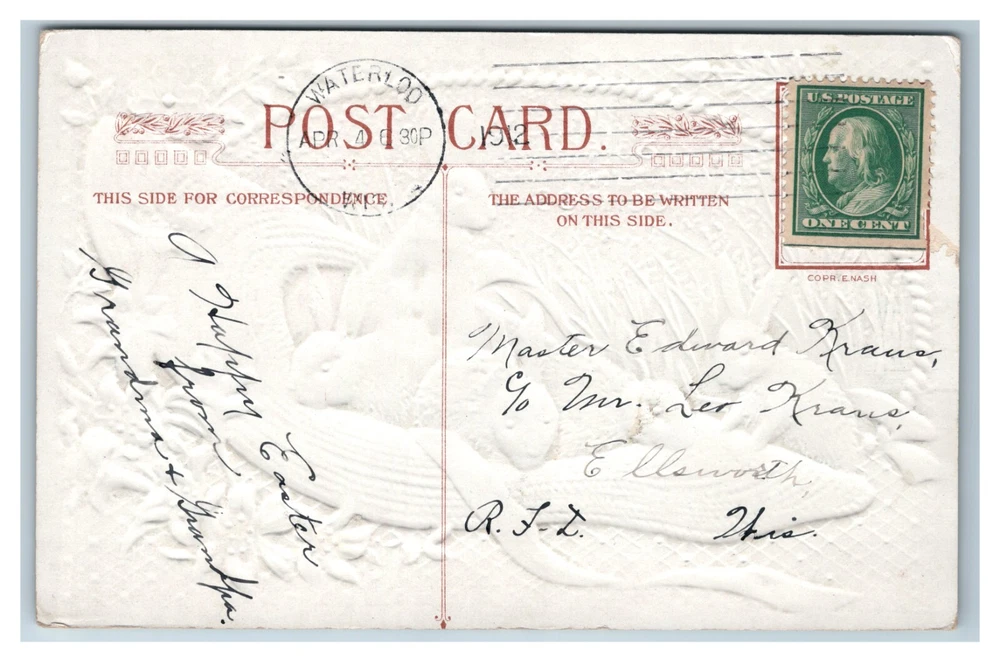 POST CARD.
WATERLOO
APR 4 6 30P
1912
WI
U.S. POSTAGE
ONE CENT
COPR. E. NASH
THIS SIDE FOR CORRESPONDENCE.
THE ADDRESS TO BE WRITTEN
ON THIS SIDE.
A Happy Easter
from
Grandma + Grandpa.
Master Edward Kraus,
c/o Mr. Leo Kraus,
Ellsworth,
R.F.D. Wis.